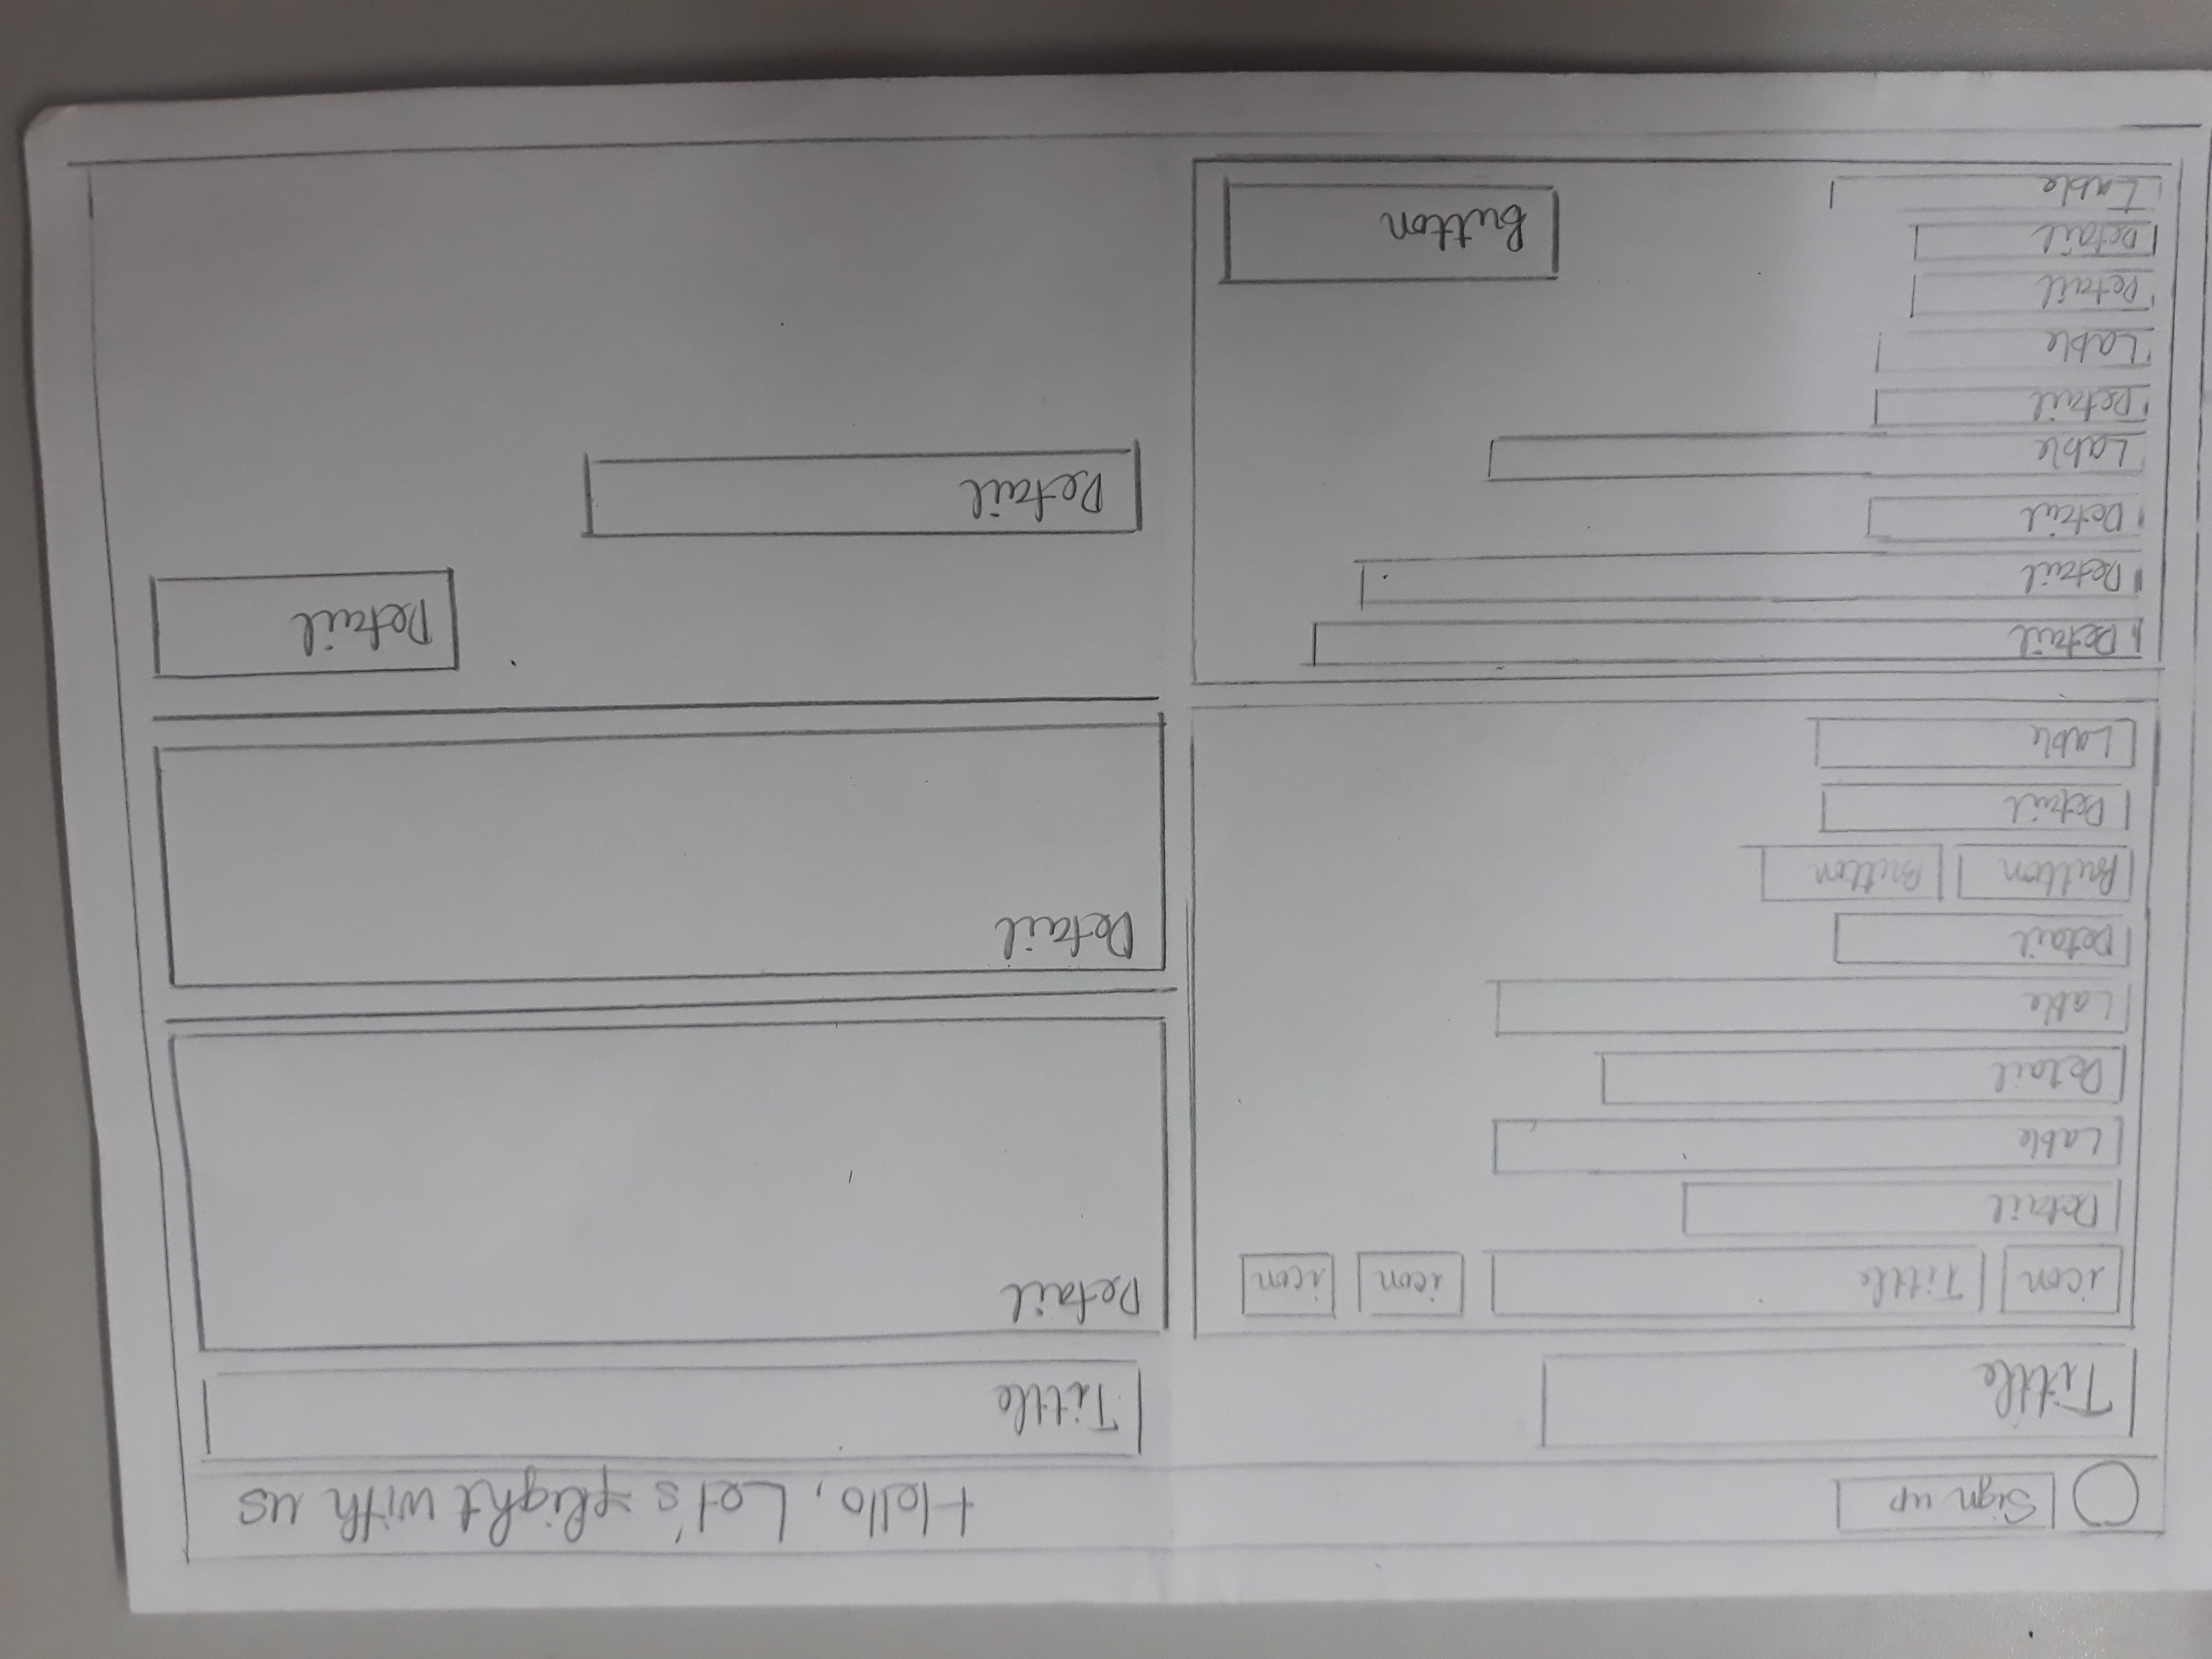 Sign up
Hello, Let's flight with us
Tittle
Tittle
icon Tittle icon icon
Detail
Lable
Detail
Lable
Detail
Button Button
Detail
Lable
Detail
Detail
Detail
Detail
Detail
Lable
Detail
Lable
Detail
Detail
Lable
Button
Detail
Detail